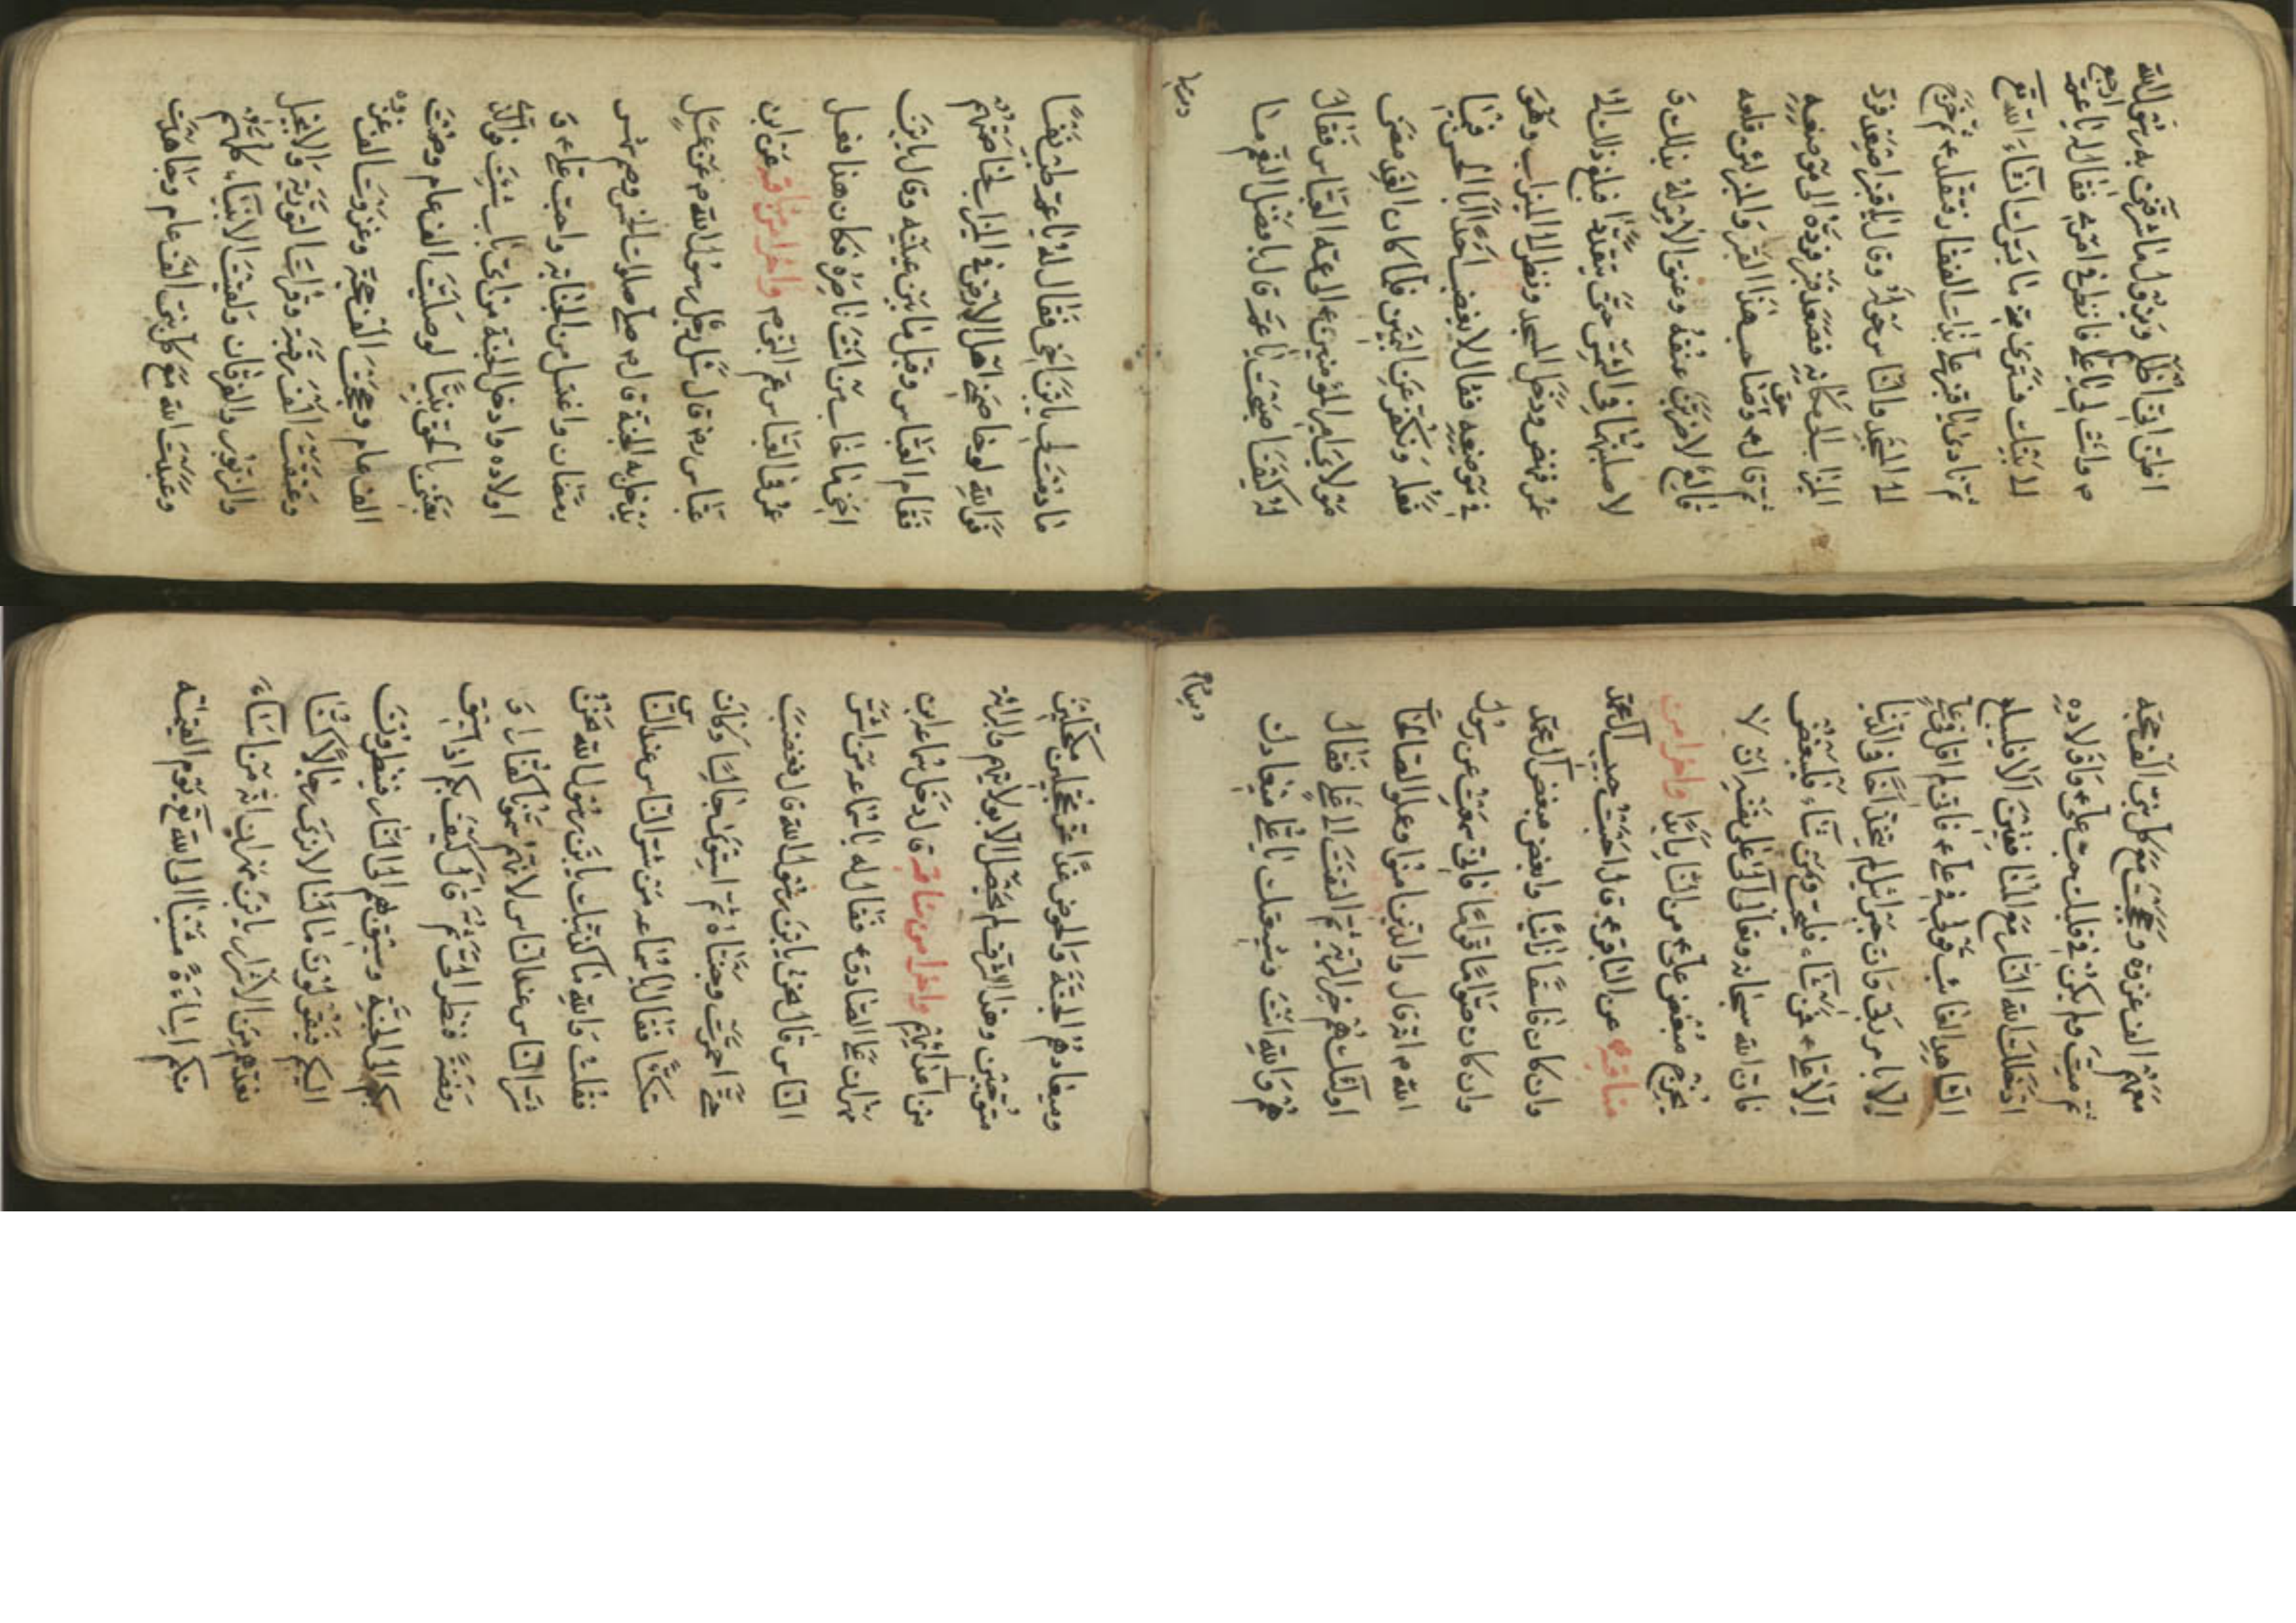 اظن انى اظلم ويزول ما شرفنى به رسول الله
ص وانت لى يا على فانظر فى امرى فقال له يا عم ارجع
الى بيتك فسترى منى ما يسرك ان شاء الله تع
ثم نادى يا قنبر على بذات الفقار فتقلده ثم خرج
الى المسجد والناس حوله وقال يا قنبر اصعد فرد
الميزاب الى مكانه فصعد قنبر فرده الى موضعه
ثم قال ع وحق صاحب هذا القبر والمنبر لئن قلعه
قالع لاضربن عنقه وعنق الامر له بذلك و
لاصلبنهما فى الشمس حتى يتقددا فبلغ ذلك الى
عمر فنهض ودخل المسجد ونظر الى الميزاب وهو
فى موضعه فقال لا يغضب احد ابا الحسن فيما
فعله ونكفر عن اليمين فلما كان الغد مضى
مولاى امير المؤمنين ع الى عمه العباس فقال
له كيف اصبحت يا عم قال بافضل النعم ما
دمت لى
ما دمت لى يا بن اخى فقال له يا عم طب نفسا
فوالله لو خاصمنى اهل الارض فى الميزاب لخاصمتهم
فقام العباس وقبل ما بين عينيه وقال يا بن
اخى ما خاب من انت ناصره فكان هذا فعل
عمر فى العباس عم النبى ص واخرا من مناقبه عن ابن
عباس رض قال سئل رجل رسول الله ص عن عمل
يدخل به الجنة قال ص صلى صلوات الخمس وصم شهر
رمضان واغتسل من الجنابة واحب على ع و
اولاده وادخل الجنة من اى باب شئت فوالذى
بعثنى بالحق نبيا لو صليت الف عام وصمت
الف عام وحججت الف حجة وغزوت الف غزوة
وعتقت الف رقبة وقرات التورية والانجيل
والزبور والفرقان ولقيت الانبياء كلهم
وعبدت الله مع كل نبى الف عام وجاهدت
معهم الف غزوة وحججت مع كل نبى الف حجة
ثم مت ولم يكن فى قلبك حب على ع واولاده
ادخلك الله النار مع المنافقين الا فليبلغ
الشاهد الغائب قولى فى على ع فانى لم اقل فى على
الا بامر ربى وان جبرئيل لم يتخذ اخا فى الدنيا
الا على ع فمن شاء فليحب ومن شاء فليبغض
فان الله سبحانه وتعالى آلى على نفسه انه لا
يخرج مبغض على ع من النار ابدا واخرا من
مناقبه ع عن الباقر ع قال احبب حبيب آل محمد
وان كان فاسقا زانيا وابغض مبغض آل محمد
وان كان صواما قواما فانى سمعت عن رسول
الله ص انه قال والذين امنوا وعملوا الصالحات
اولئك هم خير البرية ثم التفت الى على فقال
هم والله انت وشيعتك يا على ميعادك
وميعادهم
وميعادهم الجنة والحوض غدا غر محجلين مكحلين
متوجين وهذا الشرف لم يحصل الا بولايتهم والبرائة
من اعدائهم واخرا من مناقبه قال دخل سماعة ابن
مهران على الصادق ع فقال له يا سماعه من اشر
الناس قال نحن يا بن رسول الله قال فغضب
حتى احمرت وجنتاه ثم استوى جالسا وكان
متكئا فقال يا سماعه من شر الناس عند الناس
فقلت والله ما كذبتك يا بن رسول الله نحن
شر الناس عند الناس لانهم سمونا كفارا و
رفضة فنظر الى ثم قال كيف بكم اذا سيق
بكم الى الجنة وسيق بهم الى النار فينظرون
اليكم فيقولون ما لنا لا نرى رجالا كنا
نعدهم من الاشرار يا بن مهران انه من اساء
منكم اساءة مشينا الى الله تع يوم القيمة